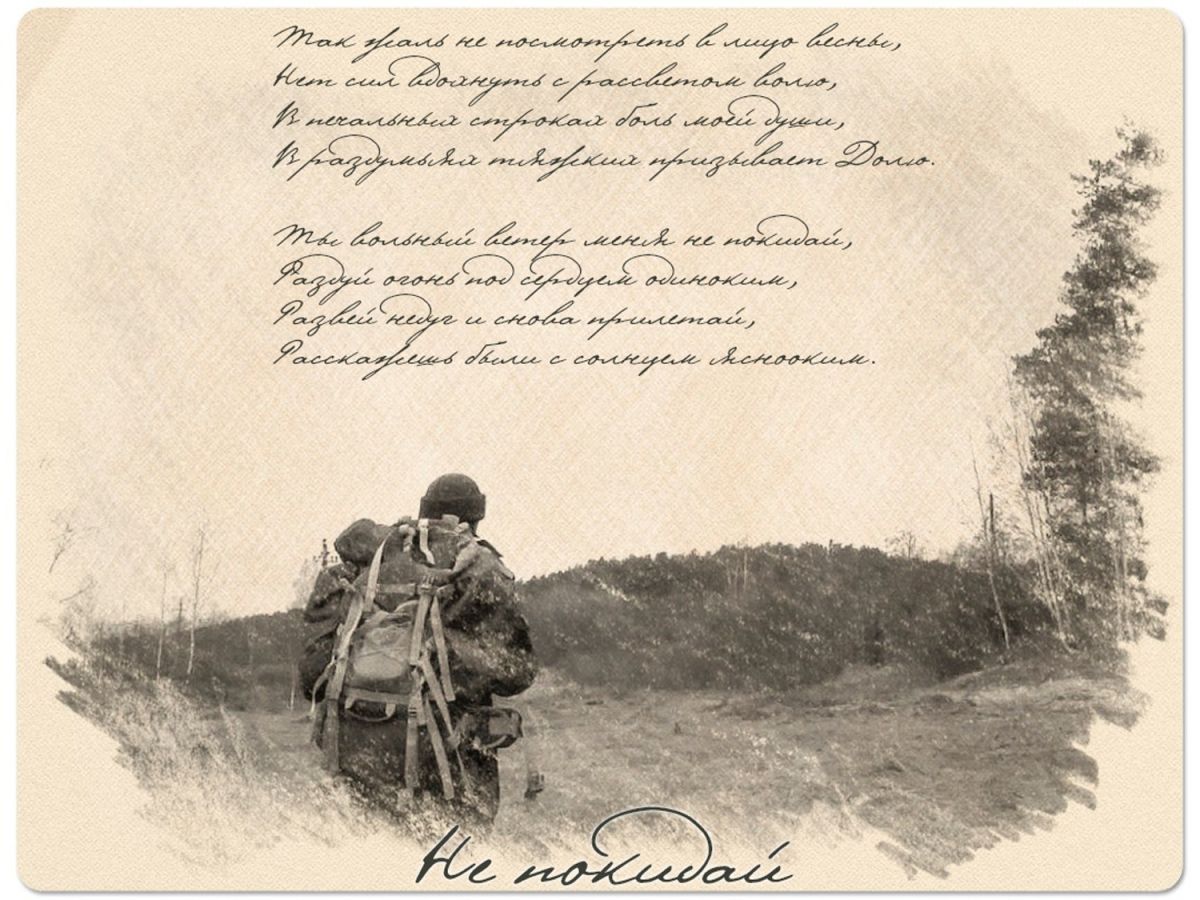 Так жаль не посмотреть в лицо весны,
Нет сил вдохнуть с рассветом волю,
В печальных строках боль моей души,
В раздумьях тяжких призывает Долю.
Ты вольный ветер меня не покидай,
Раздуй огонь под сердцем одиноким,
Развей недуг и снова прилетай,
Расскажешь были с солнцем яснооким.
Не покидай